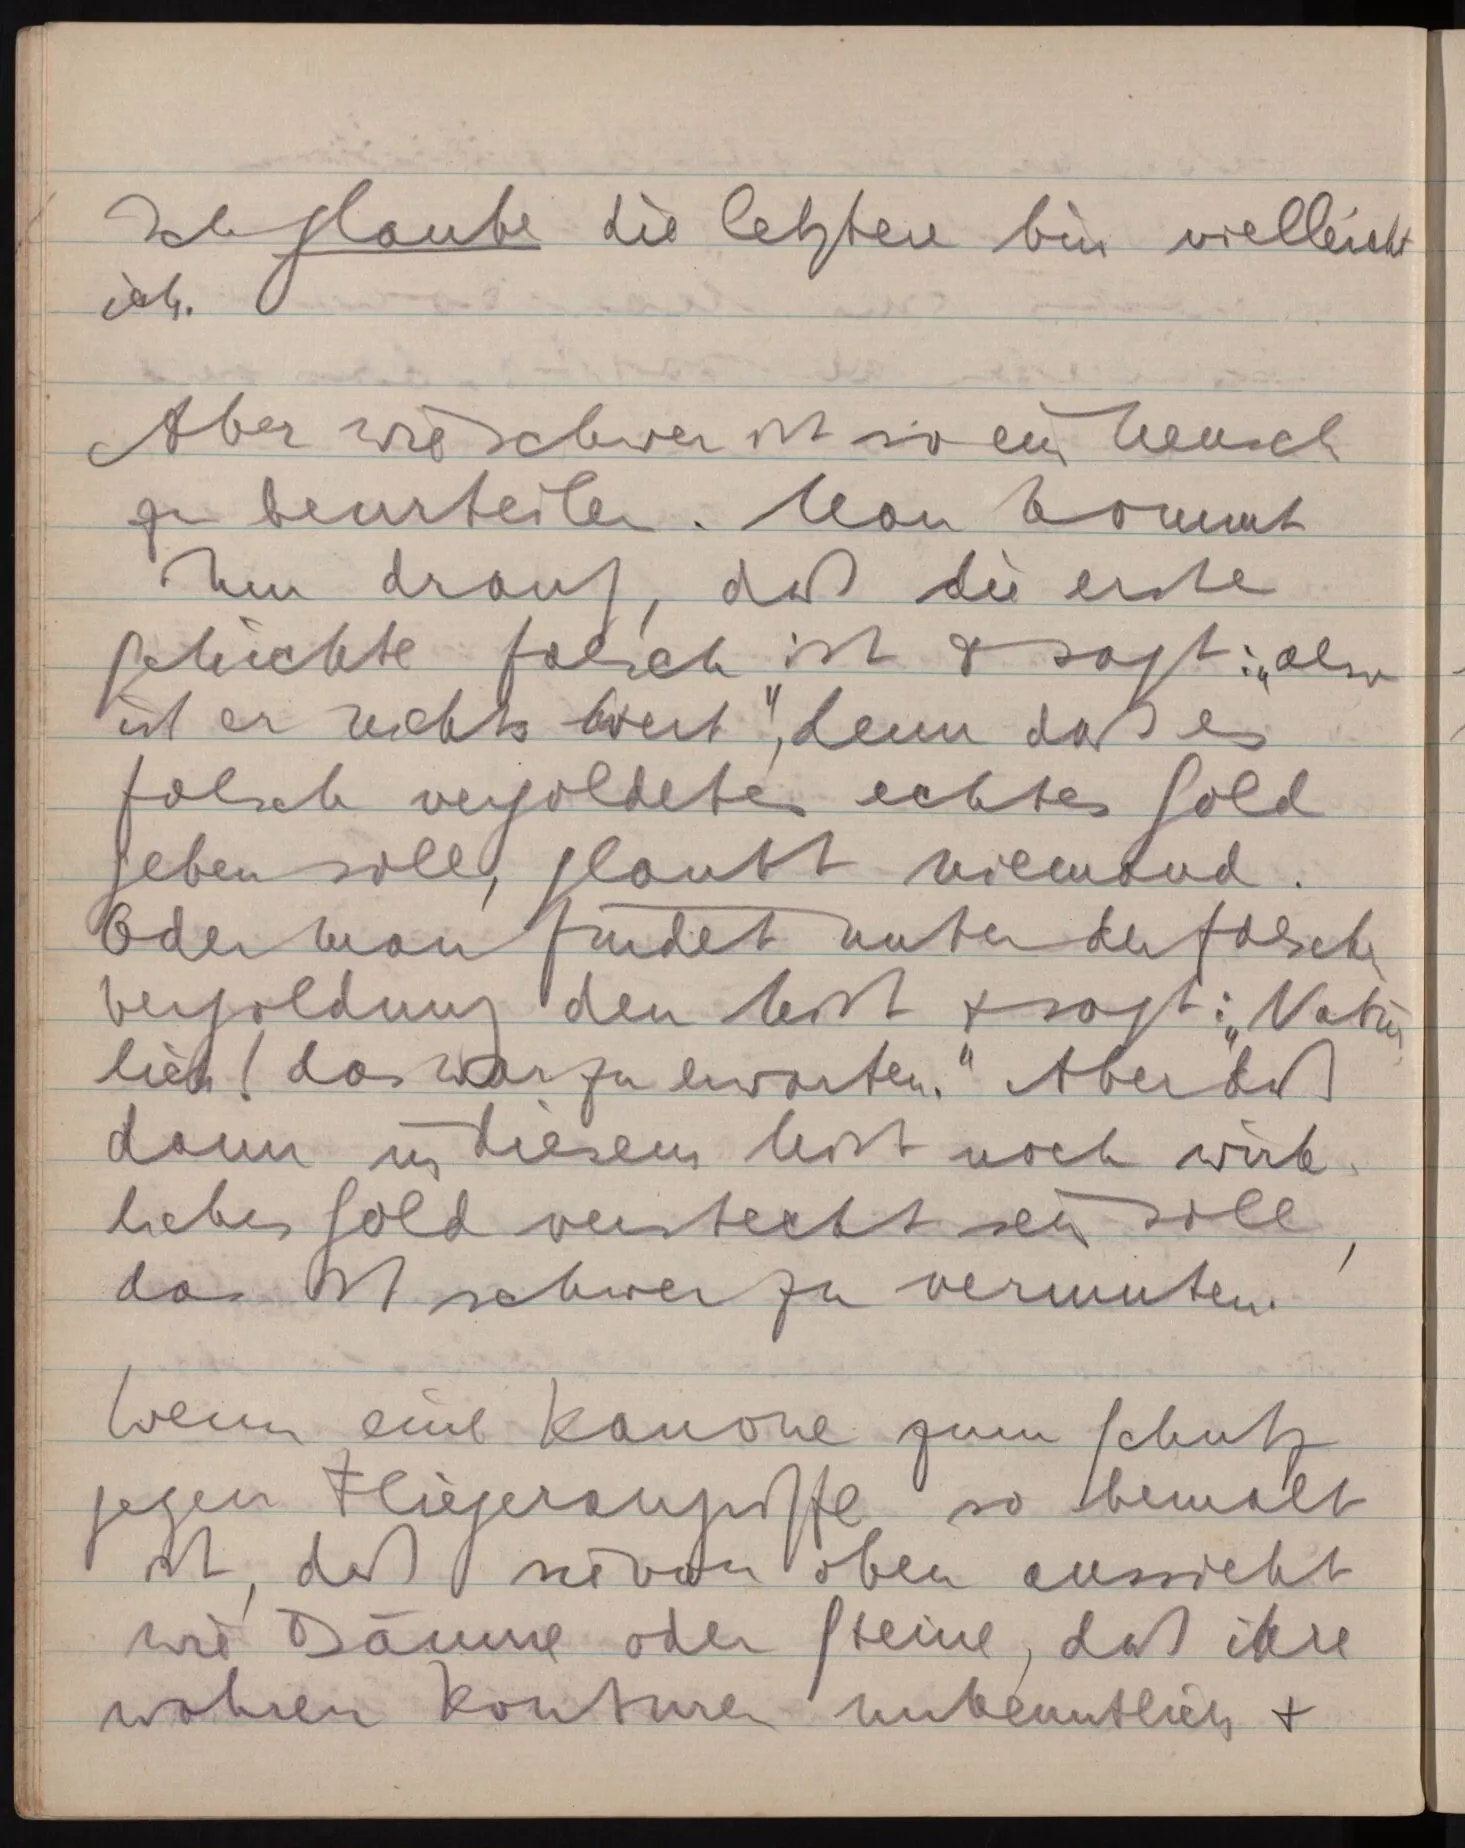 Ich glaube die letztere bin vielleicht
ich.
Aber wie schwer ist so ein Mensch
zu beurteilen. Man kommt
ihm drauf, daß die erste
Schichte falsch ist & sagt: „also
ist er nichts wert", denn daß es
falsch vergoldetes echtes Gold
geben soll, glaubt niemand.
Oder man findet unter der falschen
Vergoldung den Mist & sagt: „Natür
lich! das war zu erwarten." Aber daß
dann in diesem Mist noch wirk-
liches Gold versteckt sein soll,
das ist schwer zu vermuten.
Wenn eine Kanone zum Schutz
gegen Fliegerangriffe so bemalt
ist, daß sie von oben aussieht
wie Bäume oder Steine, daß ihre
wahren Konturen unkenntlich &